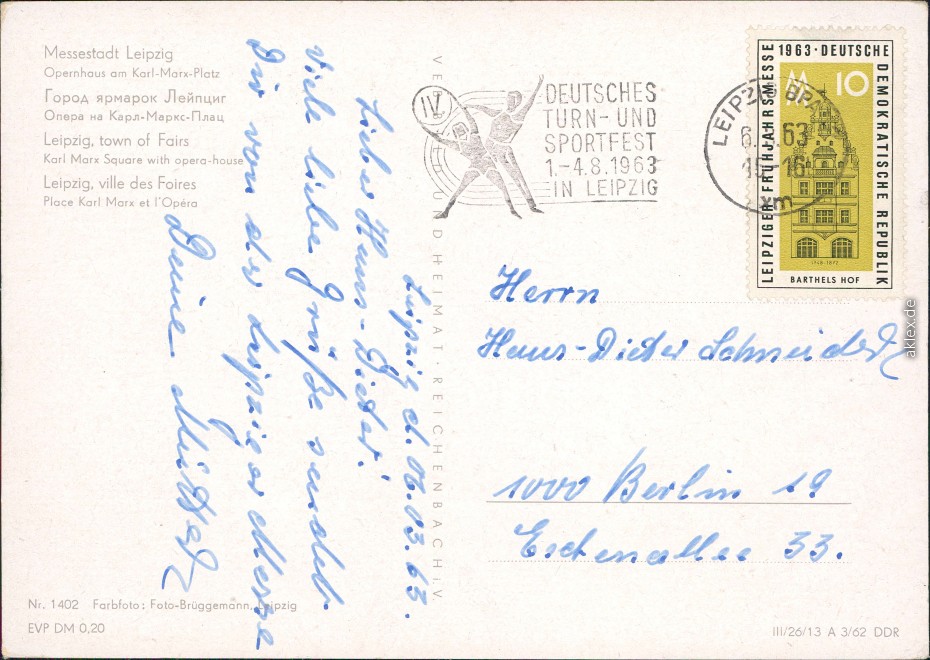 Messestadt Leipzig
Opernhaus am Karl-Marx-Platz
Город ярмарок Лейпциг
Опера на Карл-Маркс-Плац
Leipzig, town of Fairs
Karl Marx Square with opera-house
Leipzig, ville des Foires
Place Karl Marx et l'Opéra
Leipzig d. 06.03.63.
Lieber Hans-Dieter!
Viele liebe Grüße sendet
Dir von der Leipziger Messe
Deine Mutter
UND HEIMAT · REICHENBACH i. V.
IV.
DEUTSCHES
TURN- UND
SPORTFEST
1.-4.8.1963
IN LEIPZIG
LEIPZIG
6.3.63
xm
LEIPZIGER FRÜHJAHRSMESSE 1963 · DEUTSCHE DEMOKRATISCHE REPUBLIK
M 10
BARTHELS HOF
Herrn
Hans-Dieter Schneider
1000 Berlin 19
Eschenallee 33.
Nr. 1402 Farbfoto: Foto-Brüggemann, Leipzig
EVP DM 0,20
III/26/13 A 3/62 DDR
aklex.de